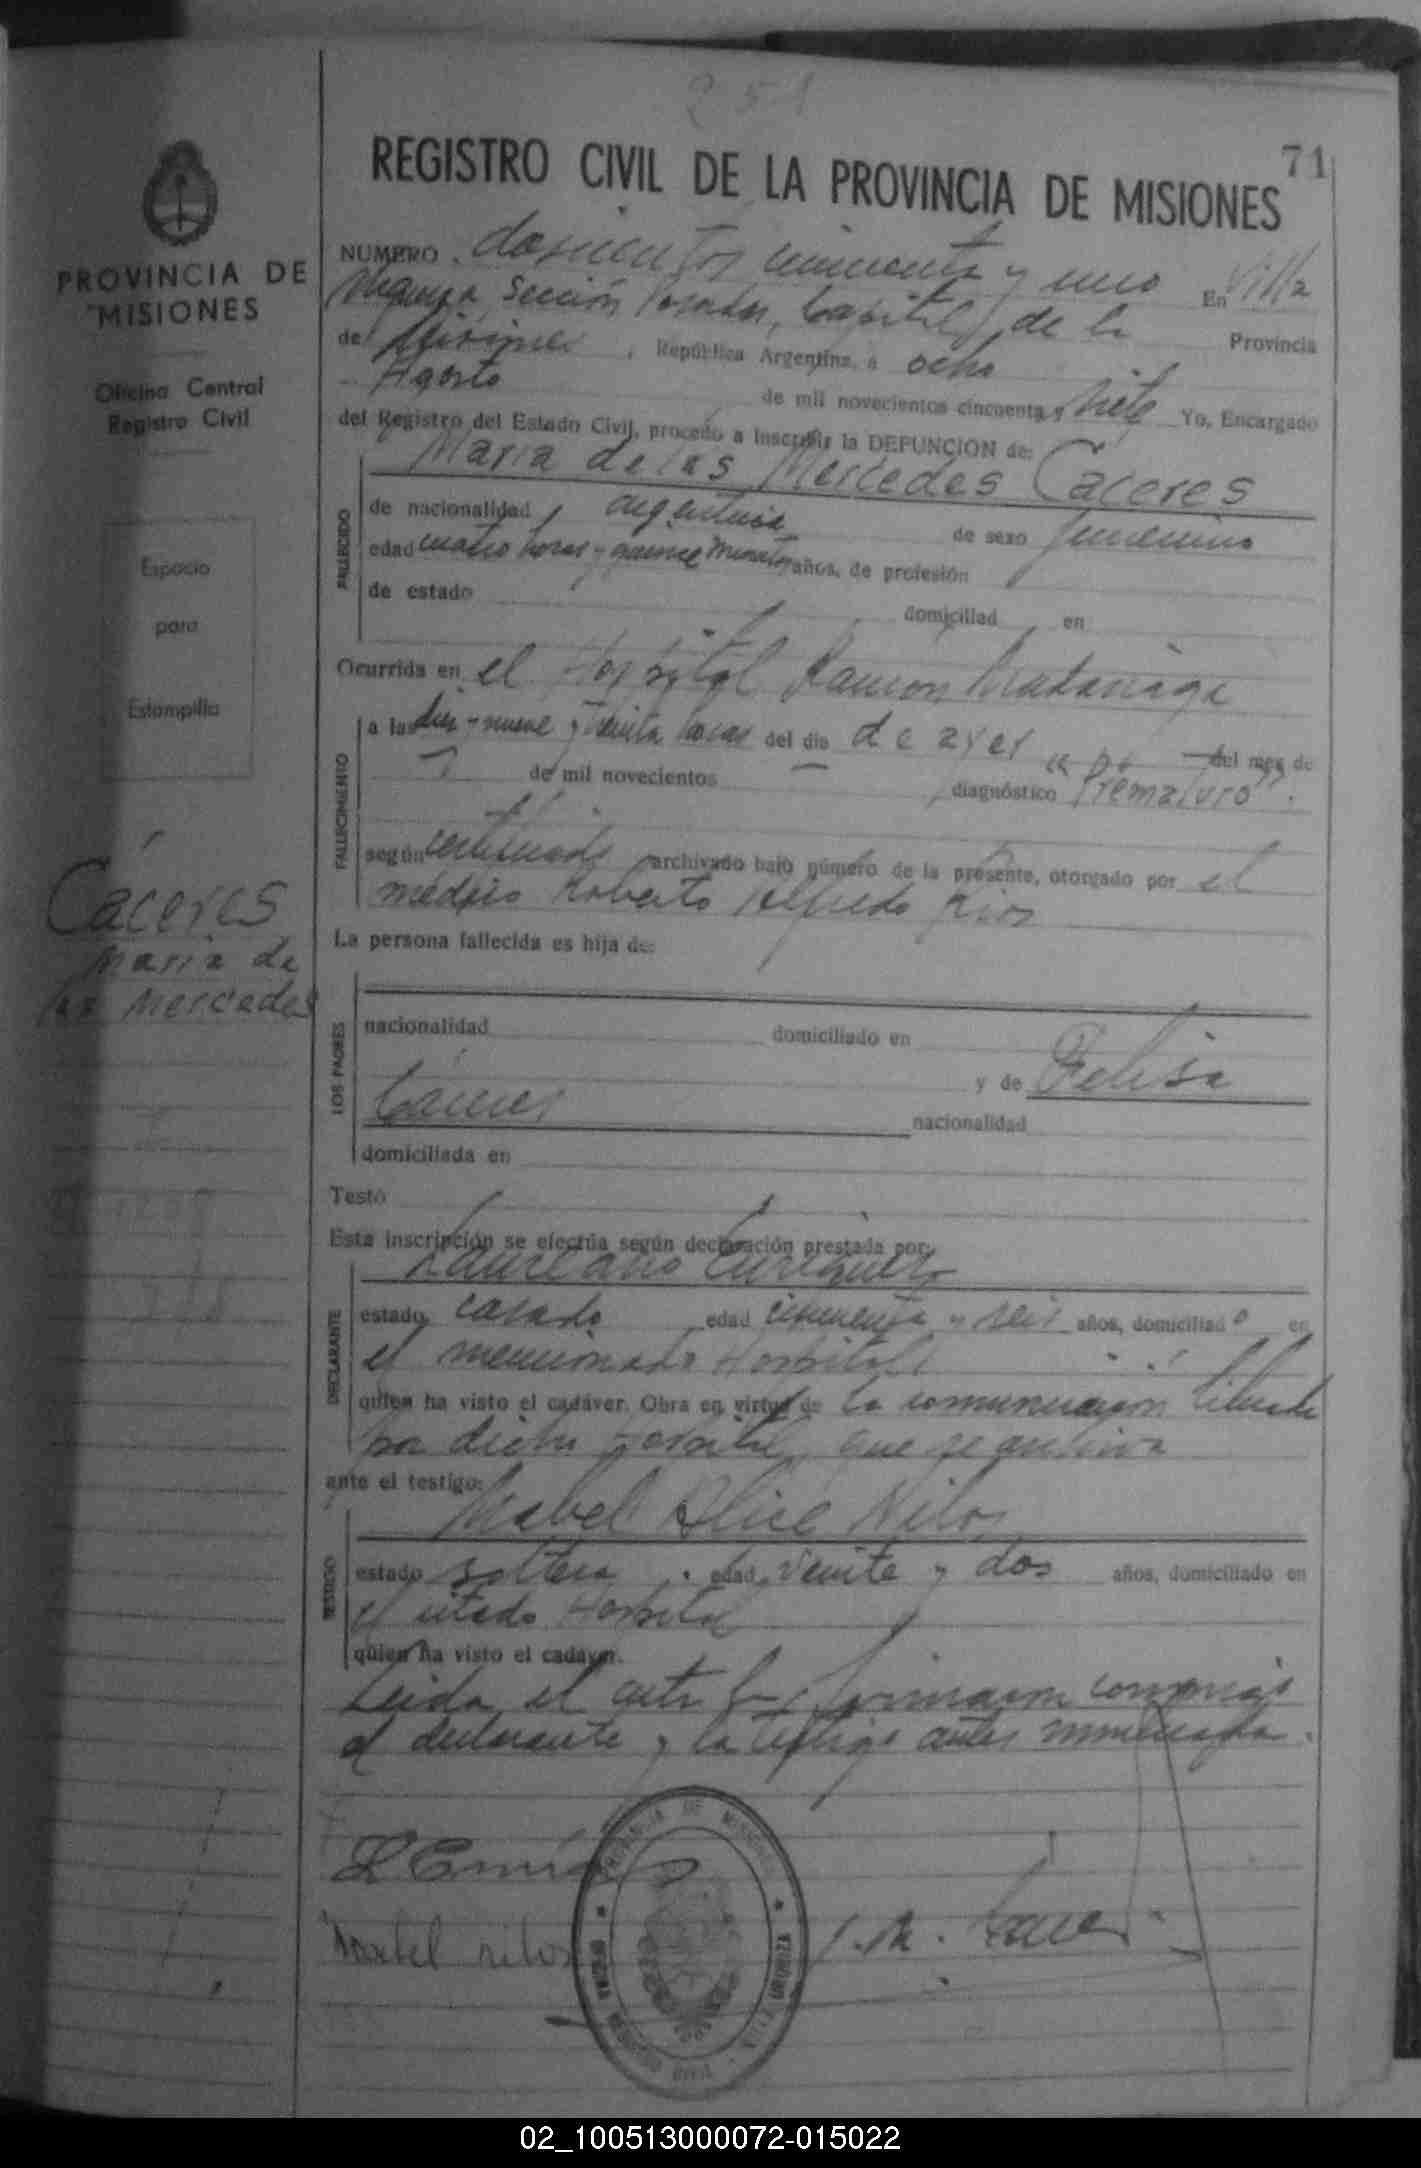 251
71
REGISTRO CIVIL DE LA PROVINCIA DE MISIONES
PROVINCIA DE
MISIONES
Oficina Central
Registro Civil
Espacio
para
Estampilla
Cáceres
Maria de
las Mercedes
NUMERO doscientos cincuenta y uno En Villa
Urquiza, Sección Posadas, Capital de la Provincia
de Misiones, República Argentina, a ocho
Agosto de mil novecientos cincuenta y siete Yo, Encargado
del Registro del Estado Civil, procedo a inscribir la DEFUNCION de:
Maria de las Mercedes Caceres
FALLECIDO
de nacionalidad argentina de sexo femenino
edad cuatro horas y quince minutos años, de profesión
de estado domiciliad en
Ocurrida en el Hospital Ramon Madariaga
FALLECIMIENTO
a las diez y nueve y treinta horas del día de ayer del mes de
de mil novecientos diagnóstico "Prematuro".
según certificado archivado bajo número de la presente, otorgado por el
médico Roberto Alfredo Rios
La persona fallecida es hija de:
LOS PADRES
nacionalidad domiciliado en
y de Felisa
Cáceres nacionalidad
domiciliada en
Testó
Esta inscripción se efectúa según declaración prestada por:
Laureano
DECLARANTE
estado casado edad cincuenta y seis años, domiciliado en
el mencionado Hospital
quien ha visto el cadáver. Obra en virtud de la comunicación librada
por dicho Hospital que se archiva
ante el testigo:
Mabel Alice Nilos
TESTIGO
estado soltera edad veinte y dos años, domiciliado en
el citado Hospital
quien ha visto el cadáver.
Leida el acta la firmaron conmigo
el declarante y la testigo antes mencionada.
Mabel Nilos
PROVINCIA DE MISIONES
OFICINA REGISTRO CIVIL
VILLA URQUIZA
02_100513000072-015022